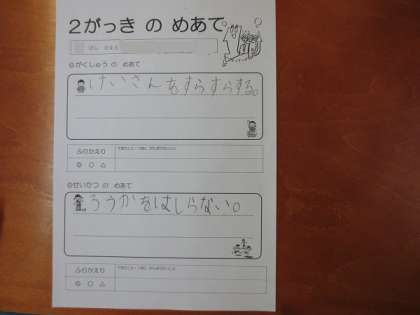 2がっき の めあて
◎がくしゅう の めあて
けいさんをすらすらする。
ふりかえり
◎ ○ △
◎せいかつ の めあて
ろうかをはしらない。
ふりかえり
◎ ○ △